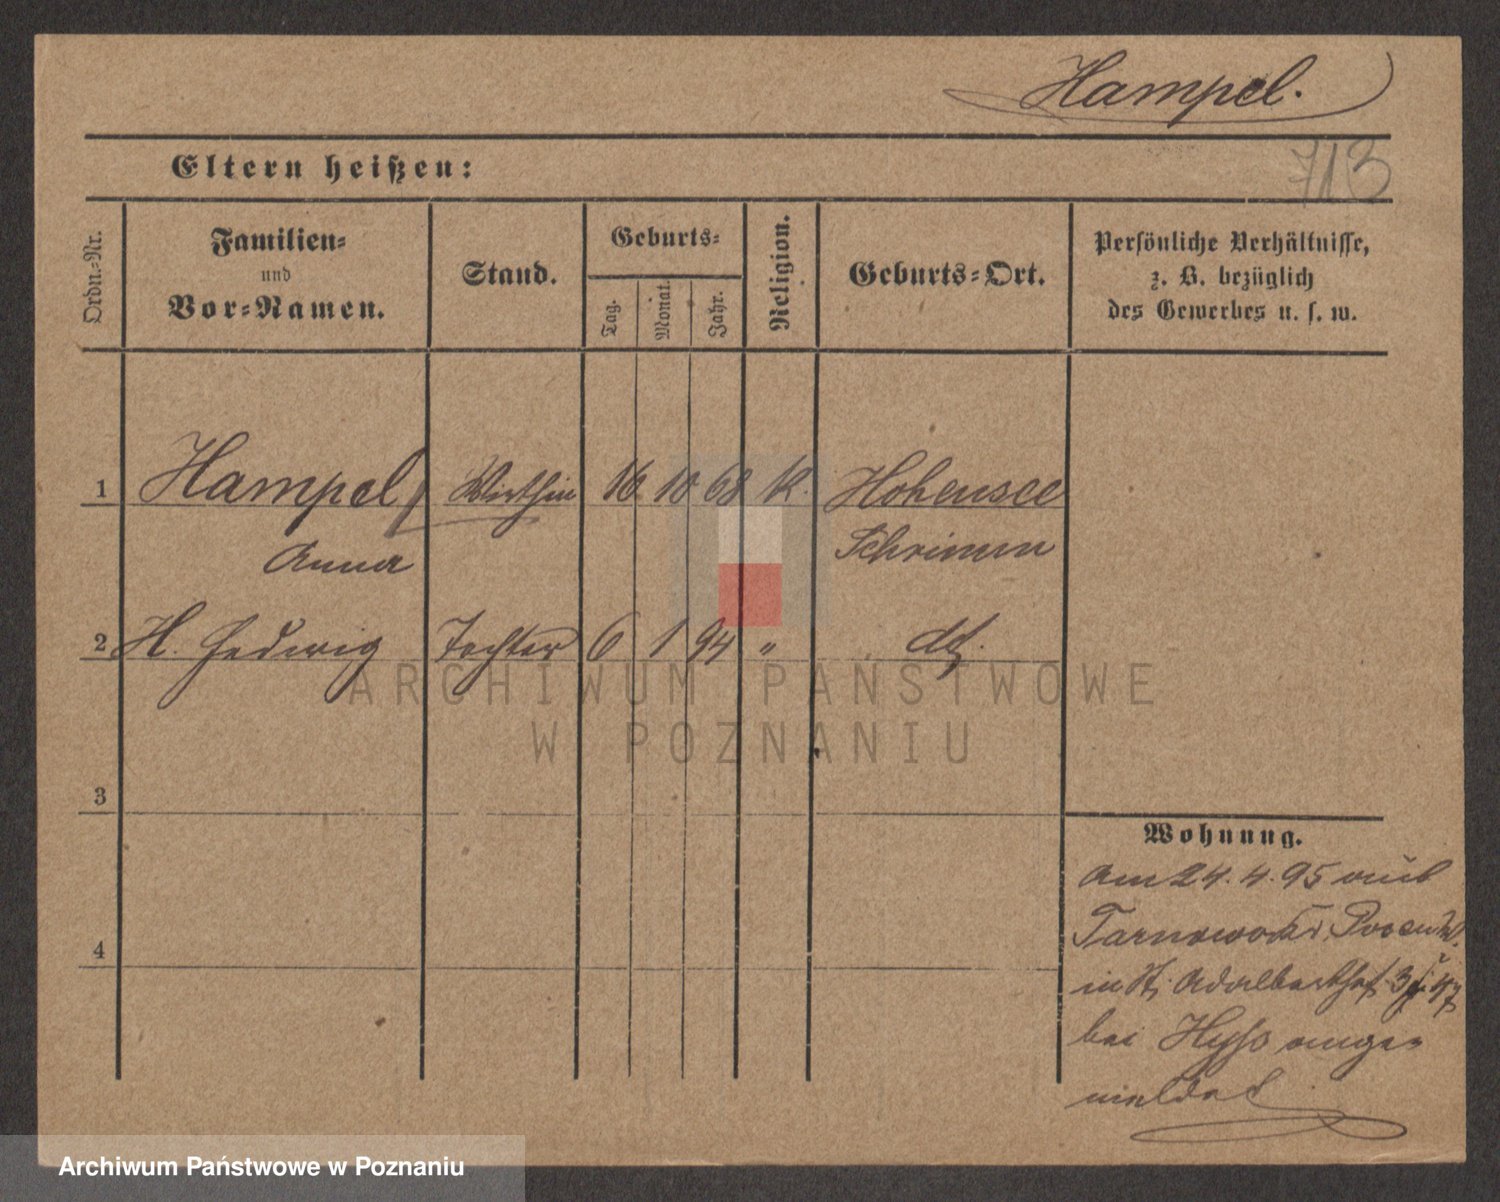 Hampel.
713
Eltern heißen:
Ordn.-Nr.
Familien-
und
Vor-Namen.
Stand.
Geburts-
Tag.
Monat.
Jahr.
Religion.
Geburts-Ort.
Persönliche Verhältnisse,
z. B. bezüglich
des Gewerbes u. s. w.
1 Hampel Wirthin 16 10 68 K. Hohensee
Anna Schrimm
2 H. Hedwig Tochter 6 1 94 " dt.
3
4
Wohnung.
Am 24. 4. 95 aus
Tarnowo Posen W.
in St. Adalberthof 3
bei ange-
meldet
ARCHIWUM PAŃSTWOWE
W POZNANIU
Archiwum Państwowe w Poznaniu